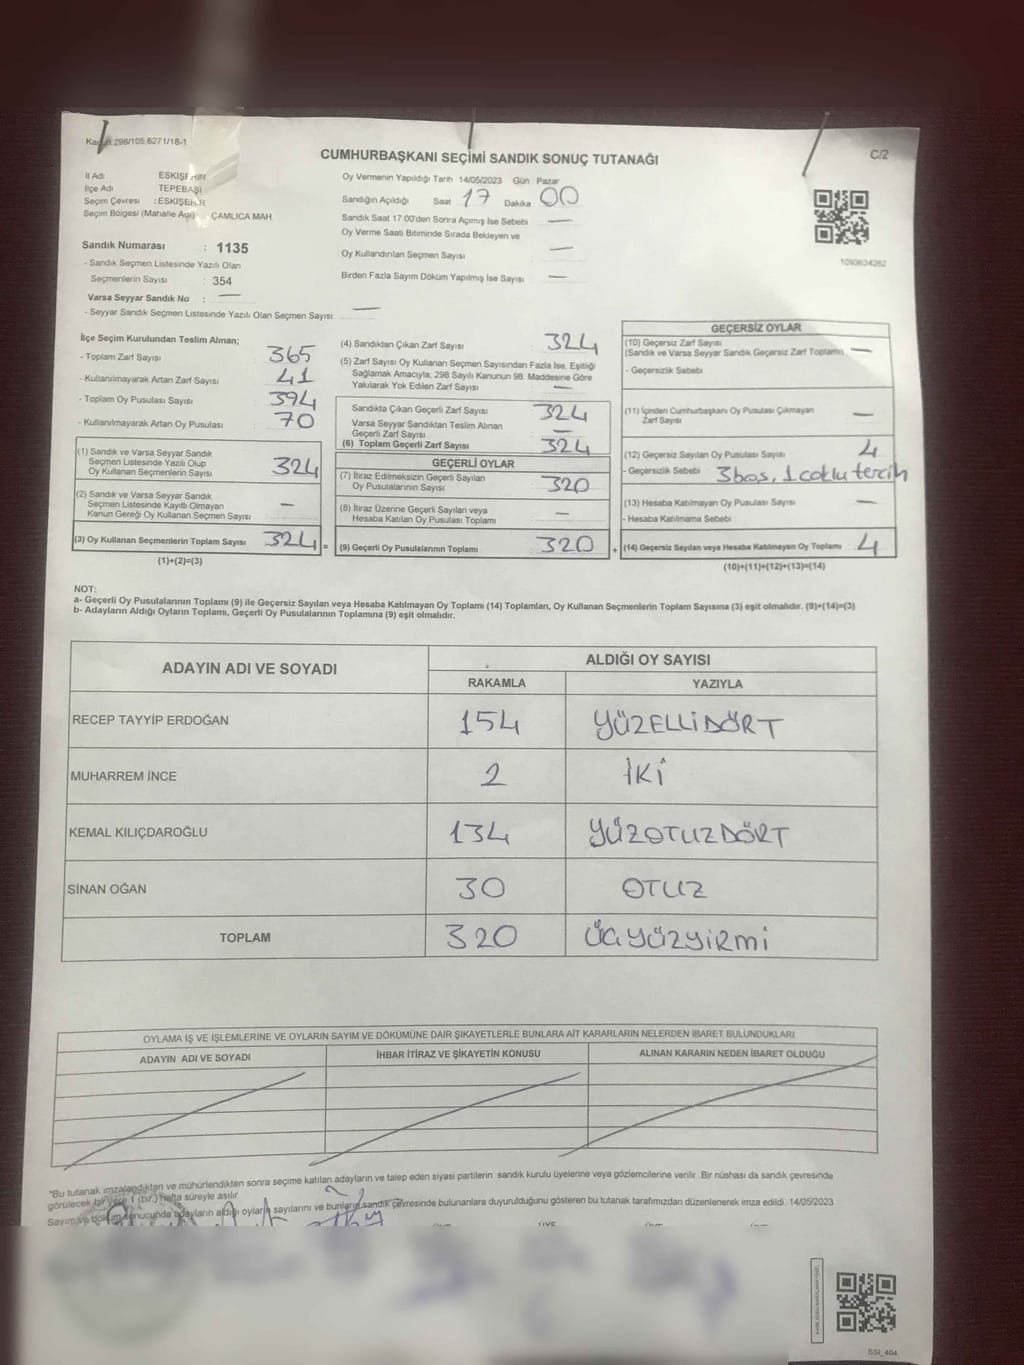 298/105,6271/18-1
CUMHURBAŞKANI SEÇİMİ SANDIK SONUÇ TUTANAĞI
C/2
İl Adı ESKİŞEHİR
İlçe Adı TEPEBAŞI
Seçim Çevresi : ESKİŞEHİR
Seçim Bölgesi (Mahalle Adı) : ÇAMLICA MAH.
Sandık Numarası : 1135
- Sandık Seçmen Listesinde Yazılı Olan
Seçmenlerin Sayısı : 354
Varsa Seyyar Sandık No : —
- Seyyar Sandık Seçmen Listesinde Yazılı Olan Seçmen Sayısı : —
Oy Vermenin Yapıldığı Tarih 14/05/2023 Gün Pazar
Sandığın Açıldığı Saat 17 Dakika 00
Sandık Saat 17:00'den Sonra Açımış İse Sebebi —
Oy Verme Saati Bitiminde Sırada Bekleyen ve
Oy Kullandırılan Seçmen Sayısı —
Birden Fazla Sayım Döküm Yapılmış İse Sayısı —
1093634262
İlçe Seçim Kurulundan Teslim Alınan;
- Toplam Zarf Sayısı 365
- Kullanılmayarak Artan Zarf Sayısı 41
- Toplam Oy Pusulası Sayısı 394
- Kullanılmayarak Artan Oy Pusulası 70
(1) Sandık ve Varsa Seyyar Sandık
Seçmen Listesinde Yazılı Olup
Oy Kullanan Seçmenlerin Sayısı 324
(2) Sandık ve Varsa Seyyar Sandık
Seçmen Listesinde Kayıtlı Olmayan
Kanun Gereği Oy Kullanan Seçmen Sayısı —
(3) Oy Kullanan Seçmenlerin Toplam Sayısı 324 =
(1)+(2)=(3)
(4) Sandıktan Çıkan Zarf Sayısı 324
(5) Zarf Sayısı Oy Kullanan Seçmen Sayısından Fazla İse, Eşitliği
Sağlamak Amacıyla, 298 Sayılı Kanunun 98. Maddesine Göre
Yakılarak Yok Edilen Zarf Sayısı —
Sandıkta Çıkan Geçerli Zarf Sayısı 324
Varsa Seyyar Sandıktan Teslim Alınan
Geçerli Zarf Sayısı —
(6) Toplam Geçerli Zarf Sayısı 324
GEÇERLİ OYLAR
(7) İtiraz Edilmeksizin Geçerli Sayılan
Oy Pusulalarının Sayısı 320
(8) İtiraz Üzerine Geçerli Sayılan veya
Hesaba Katılan Oy Pusulası Toplamı —
(9) Geçerli Oy Pusulalarının Toplamı 320 +
GEÇERSİZ OYLAR
(10) Geçersiz Zarf Sayısı
(Sandık ve Varsa Seyyar Sandık Geçersiz Zarf Toplamı) —
- Geçersizlik Sebebi
(11) İçinden Cumhurbaşkanı Oy Pusulası Çıkmayan
Zarf Sayısı —
(12) Geçersiz Sayılan Oy Pusulası Sayısı 4
- Geçersizlik Sebebi 3 boş, 1 çoklu tercih
(13) Hesaba Katılmayan Oy Pusulası Sayısı —
- Hesaba Katılmama Sebebi
(14) Geçersiz Sayılan veya Hesaba Katılmayan Oy Toplamı 4
(10)+(11)+(12)+(13)=(14)
NOT:
a- Geçerli Oy Pusulalarının Toplamı (9) ile Geçersiz Sayılan veya Hesaba Katılmayan Oy Toplamı (14) Toplamları, Oy Kullanan Seçmenlerin Toplam Sayısına (3) eşit olmalıdır. (9)+(14)=(3)
b- Adayların Aldığı Oyların Toplamı, Geçerli Oy Pusulalarının Toplamına (9) eşit olmalıdır.
ADAYIN ADI VE SOYADI ALDIĞI OY SAYISI
RAKAMLA YAZIYLA
RECEP TAYYİP ERDOĞAN 154 YÜZELLİDÖRT
MUHARREM İNCE 2 İKİ
KEMAL KILIÇDAROĞLU 134 YÜZOTUZDÖRT
SİNAN OĞAN 30 OTUZ
TOPLAM 320 ÜÇYÜZYİRMİ
OYLAMA İŞ VE İŞLEMLERİNE VE OYLARIN SAYIM VE DÖKÜMÜNE DAİR ŞİKAYETLERLE BUNLARA AİT KARARLARIN NELERDEN İBARET BULUNDUKLARI
ADAYIN ADI VE SOYADI İHBAR İTİRAZ VE ŞİKAYETİN KONUSU ALINAN KARARIN NEDEN İBARET OLDUĞU
"Bu tutanak imzalandıktan ve mühürlendikten sonra seçime katılan adayların ve talep eden siyasi partilerin sandık kurulu üyelerine veya gözlemcilerine verilir. Bir nüshası da sandık çevresinde
görülecek bir yere 1 (bir) hafta süreyle asılır.
Sayım ve döküm sonucunda adayların aldığı oyların sayılarını ve bunların sandık çevresinde bulunanlara duyurulduğunu gösteren bu tutanak tarafımızdan düzenlenerek imza edildi. 14/05/2023
ÜYE
SSI_404